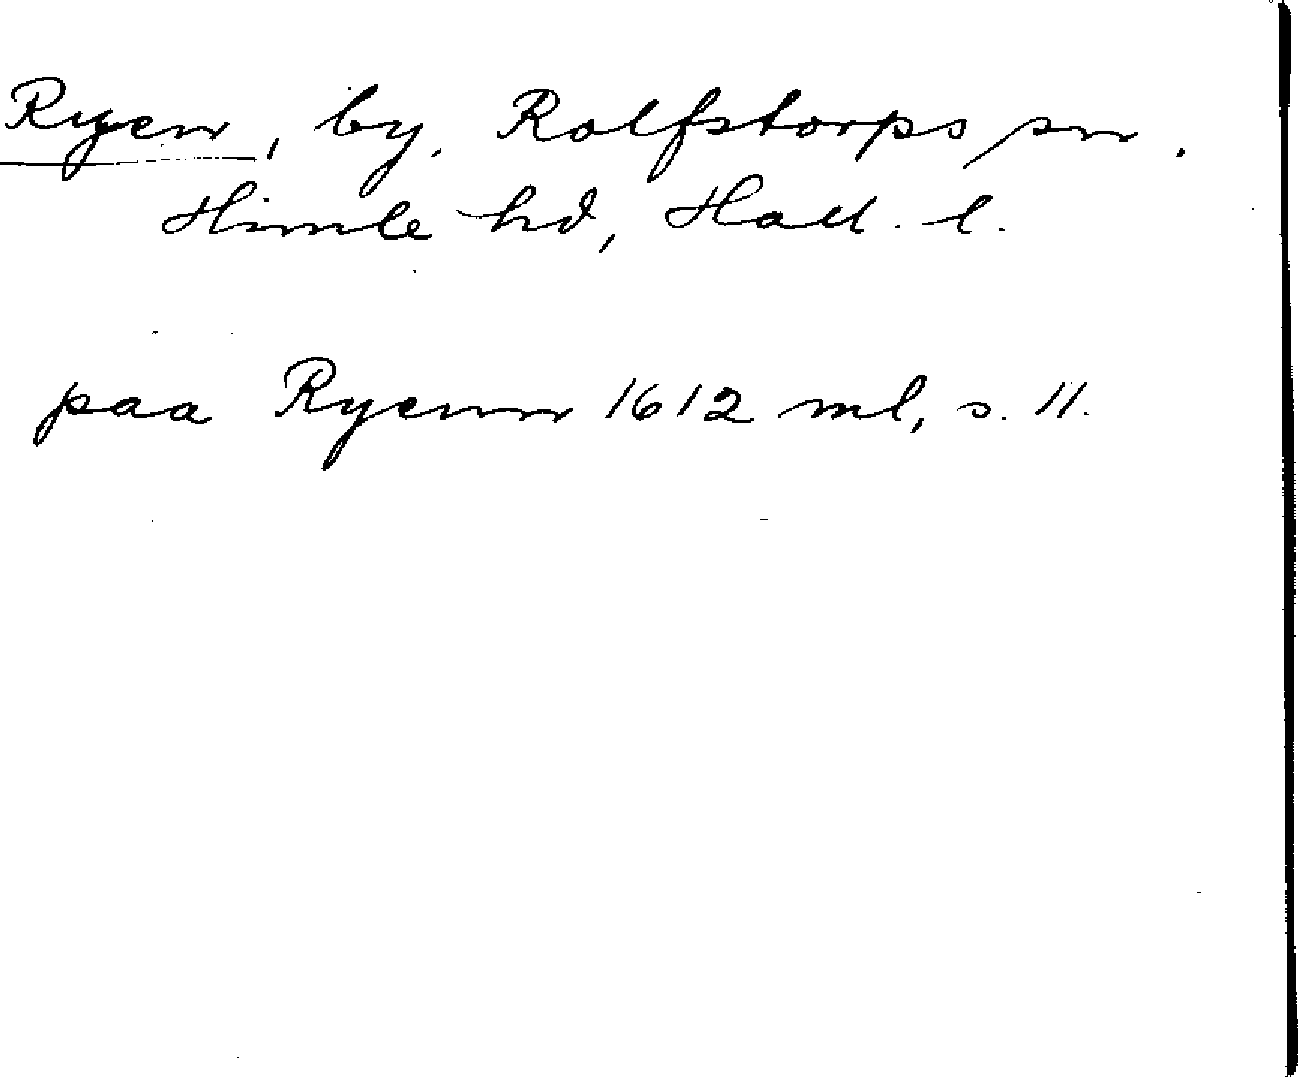 Ryen, by, Rolfstorps sn.
Himle hd, Hall. l.
paa Ryenn 1612 ml, s. 11.